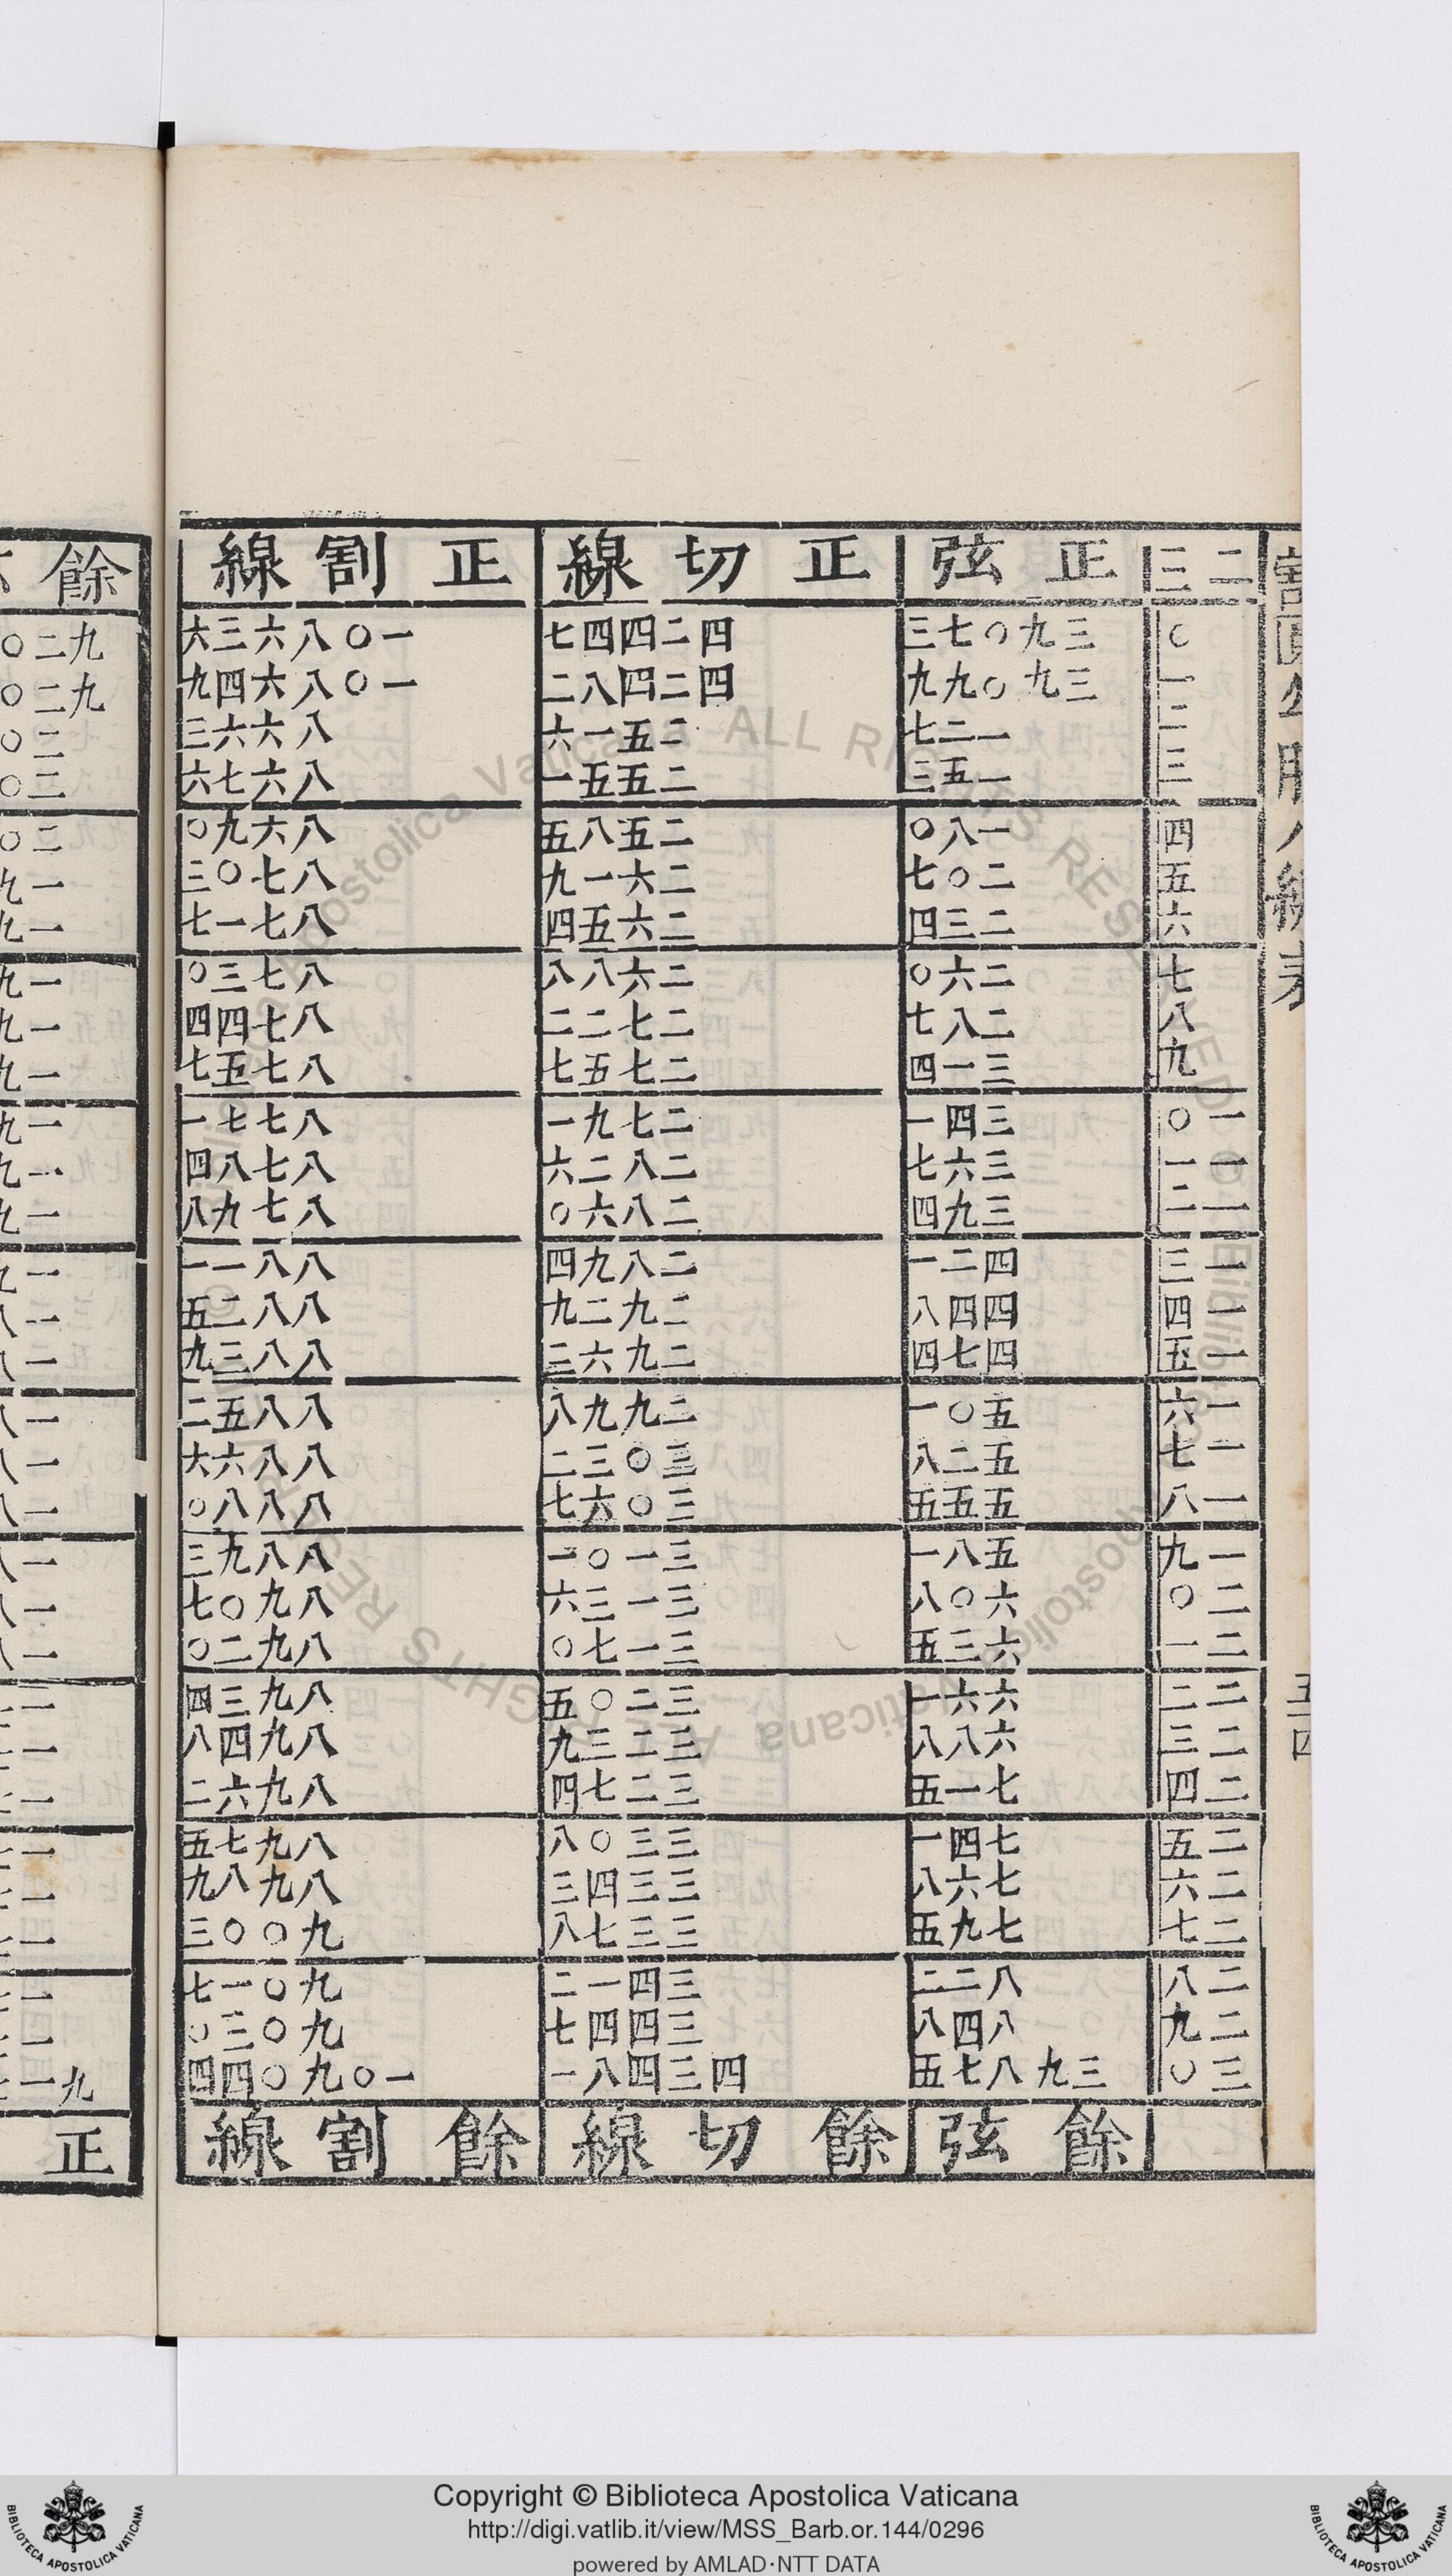 割圓勾股八線表
五四
二三 正弦 正切線 正割線
〇 三九〇七三 四二四四七 一〇八六三六
一 三九〇九九 四二四八二 一〇八六四九
二 一二七 二五一六 八六六三
三 一五三 二五五一 八六七六
四 一八〇 二五八五 八六九〇
五 二〇七 二六一九 八七〇三
六 二三四 二六五四 八七一七
七 二六〇 二六八八 八七三〇
八 二八七 二七二二 八七四四
九 三一四 二七五七 八七五七
一〇 三四一 二七九一 八七七一
一一 三六七 二八二六 八七八四
一二 三九四 二八六〇 八七九八
一三 四二一 二八九四 八八一一
一四 四四八 二九二九 八八二五
一五 四七四 二九六三 八八三九
一六 五〇一 二九九八 八八五二
一七 五二八 三〇三二 八八六六
一八 五五五 三〇六七 八八八〇
一九 五八一 三一〇一 八八九三
二〇 六〇八 三一三六 八九〇七
二一 六三五 三一七〇 八九二〇
二二 六六一 三二〇五 八九三四
二三 六八八 三二三九 八九四八
二四 七一五 三二七四 八九六二
二五 七四一 三三〇八 八九七五
二六 七六八 三三四三 八九八九
二七 七九五 三三七八 九〇〇三
二八 八二二 三四一二 九〇一七
二九 八四八 三四四七 九〇三〇
三〇 三九八七五 四三四八一 一〇九〇四四
餘弦 餘切線 餘割線
餘
正
Copyright © Biblioteca Apostolica Vaticana
http://digi.vatlib.it/view/MSS_Barb.or.144/0296
powered by AMLAD·NTT DATA
BIBLIOTECA APOSTOLICA VATICANA
BIBLIOTECA APOSTOLICA VATICANA